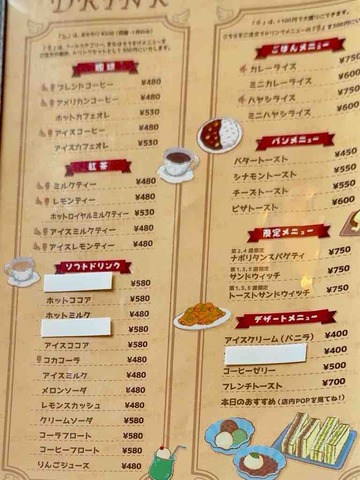 DRINK
珈琲
ブレンドコーヒー ¥480
アメリカンコーヒー ¥480
ホットカフェオレ ¥530
アイスコーヒー ¥480
アイスカフェオレ ¥530
紅茶
ミルクティー ¥480
レモンティー ¥480
ホットロイヤルミルクティー ¥530
アイスミルクティー ¥480
アイスレモンティー ¥480
ソフトドリンク
¥580
ホットココア ¥580
ホットミルク ¥480
¥580
アイスココア ¥580
コカコーラ ¥480
アイスミルク ¥480
メロンソーダ ¥480
レモンスカッシュ ¥480
クリームソーダ ¥580
コーラフロート ¥580
コーヒーフロート ¥580
りんごジュース ¥480
ごはんメニュー
カレーライス ¥750
ミニカレーライス ¥600
ハヤシライス ¥750
ミニハヤシライス ¥600
パンメニュー
バタートースト ¥450
シナモントースト ¥550
チーズトースト ¥550
ピザトースト ¥600
限定メニュー
第2,4週限定
ナポリタンスパゲティ ¥750
第1,3,5週限定
サンドウィッチ ¥750
第1,3,5週限定
トーストサンドウィッチ ¥750
デザートメニュー
アイスクリーム(バニラ) ¥400
¥400
コーヒーゼリー ¥500
フレンチトースト ¥700
本日のおすすめ(店内POPを見てね!)